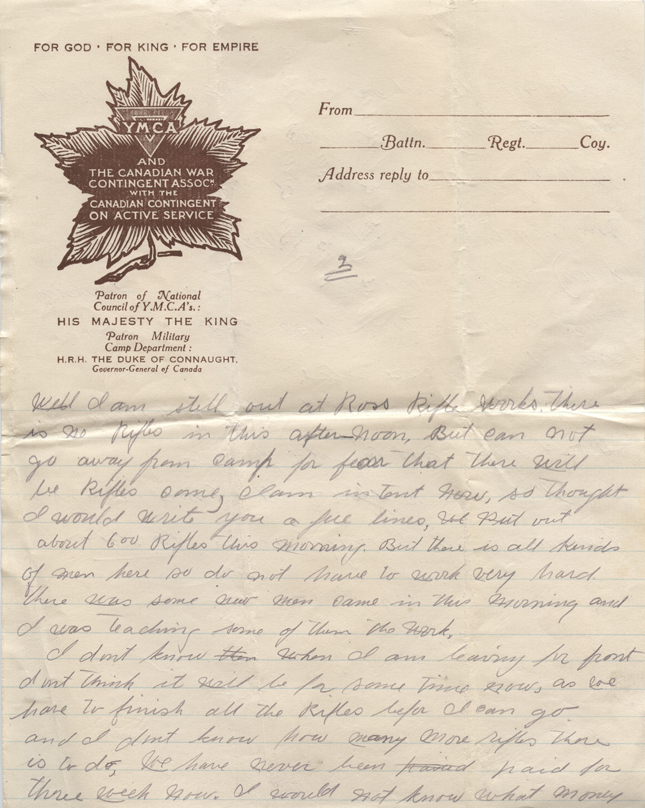 FOR GOD · FOR KING · FOR EMPIRE
YMCA
AND
THE CANADIAN WAR
CONTINGENT ASSOCN
WITH THE
CANADIAN CONTINGENT
ON ACTIVE SERVICE
Patron of National
Council of Y.M.C.A's.:
HIS MAJESTY THE KING
Patron Military
Camp Department:
H.R.H. THE DUKE OF CONNAUGHT.
Governor-General of Canada
From
Battn. Regt. Coy.
Address reply to
3
Well I am still out at Ross Rifle Works. There
is no Rifles in this after-noon, But can not
go away from camp for fear that there will
be Rifles come, I am in tent now, so thought
I would write you a few lines, We Put out
about 600 Rifles this morning. But there is all kinds
of men here so do not have to work very hard
there was some new men came in this morning and
I was teaching some of them the work.
I dont know when I am leaving for front
dont think it will be for some time now, as we
have to finish all the Rifles befor I can go
and I dont know how many more rifles there
is to do, We have never been paid for
three week now. I would not know what money